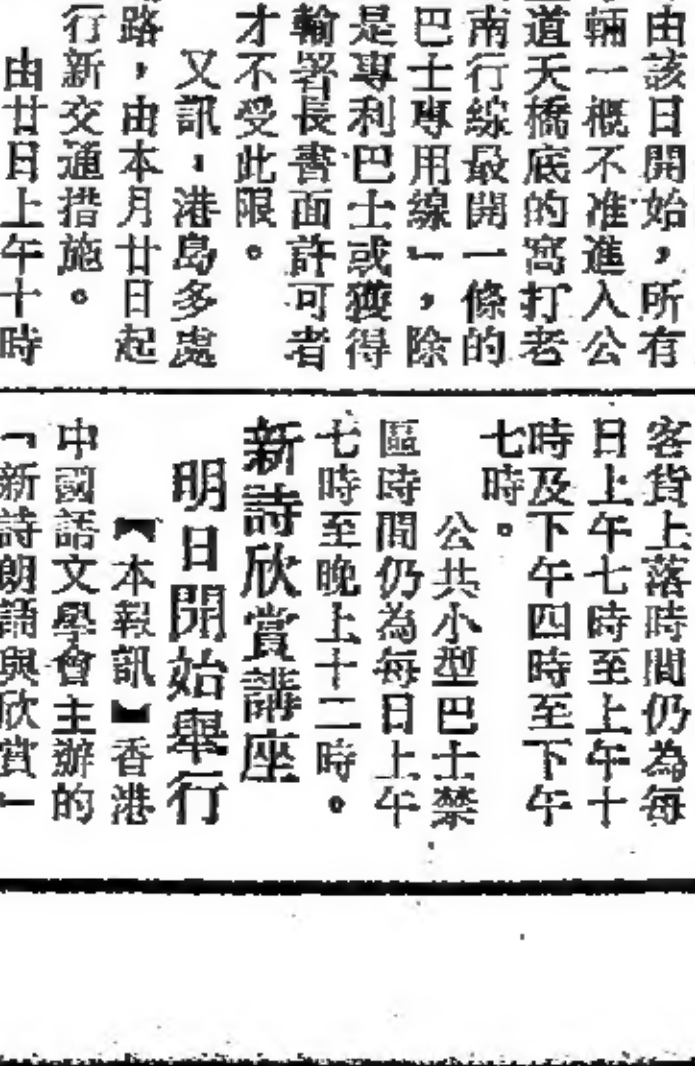 由該日開始，所有
輛一概不准進入公
道天橋底的窩打老
南行綫最開一條的
巴士專用線」，除
是專利巴士或獲得
輸署長書面許可者
才不受此限。
又訊：港島多處
路，由本月廿日起
行新交通措施。
由廿日上午十時
客貨上落時間仍為每
日上午七時至上午十
時及下午四時至下午
七時。
公共小型巴士禁
區時間仍為每日上午
七時至晚上十二時。
新詩欣賞講座
明日開始舉行
【本報訊】香港
中國語文學會主辦的
「新詩朗誦與欣賞」